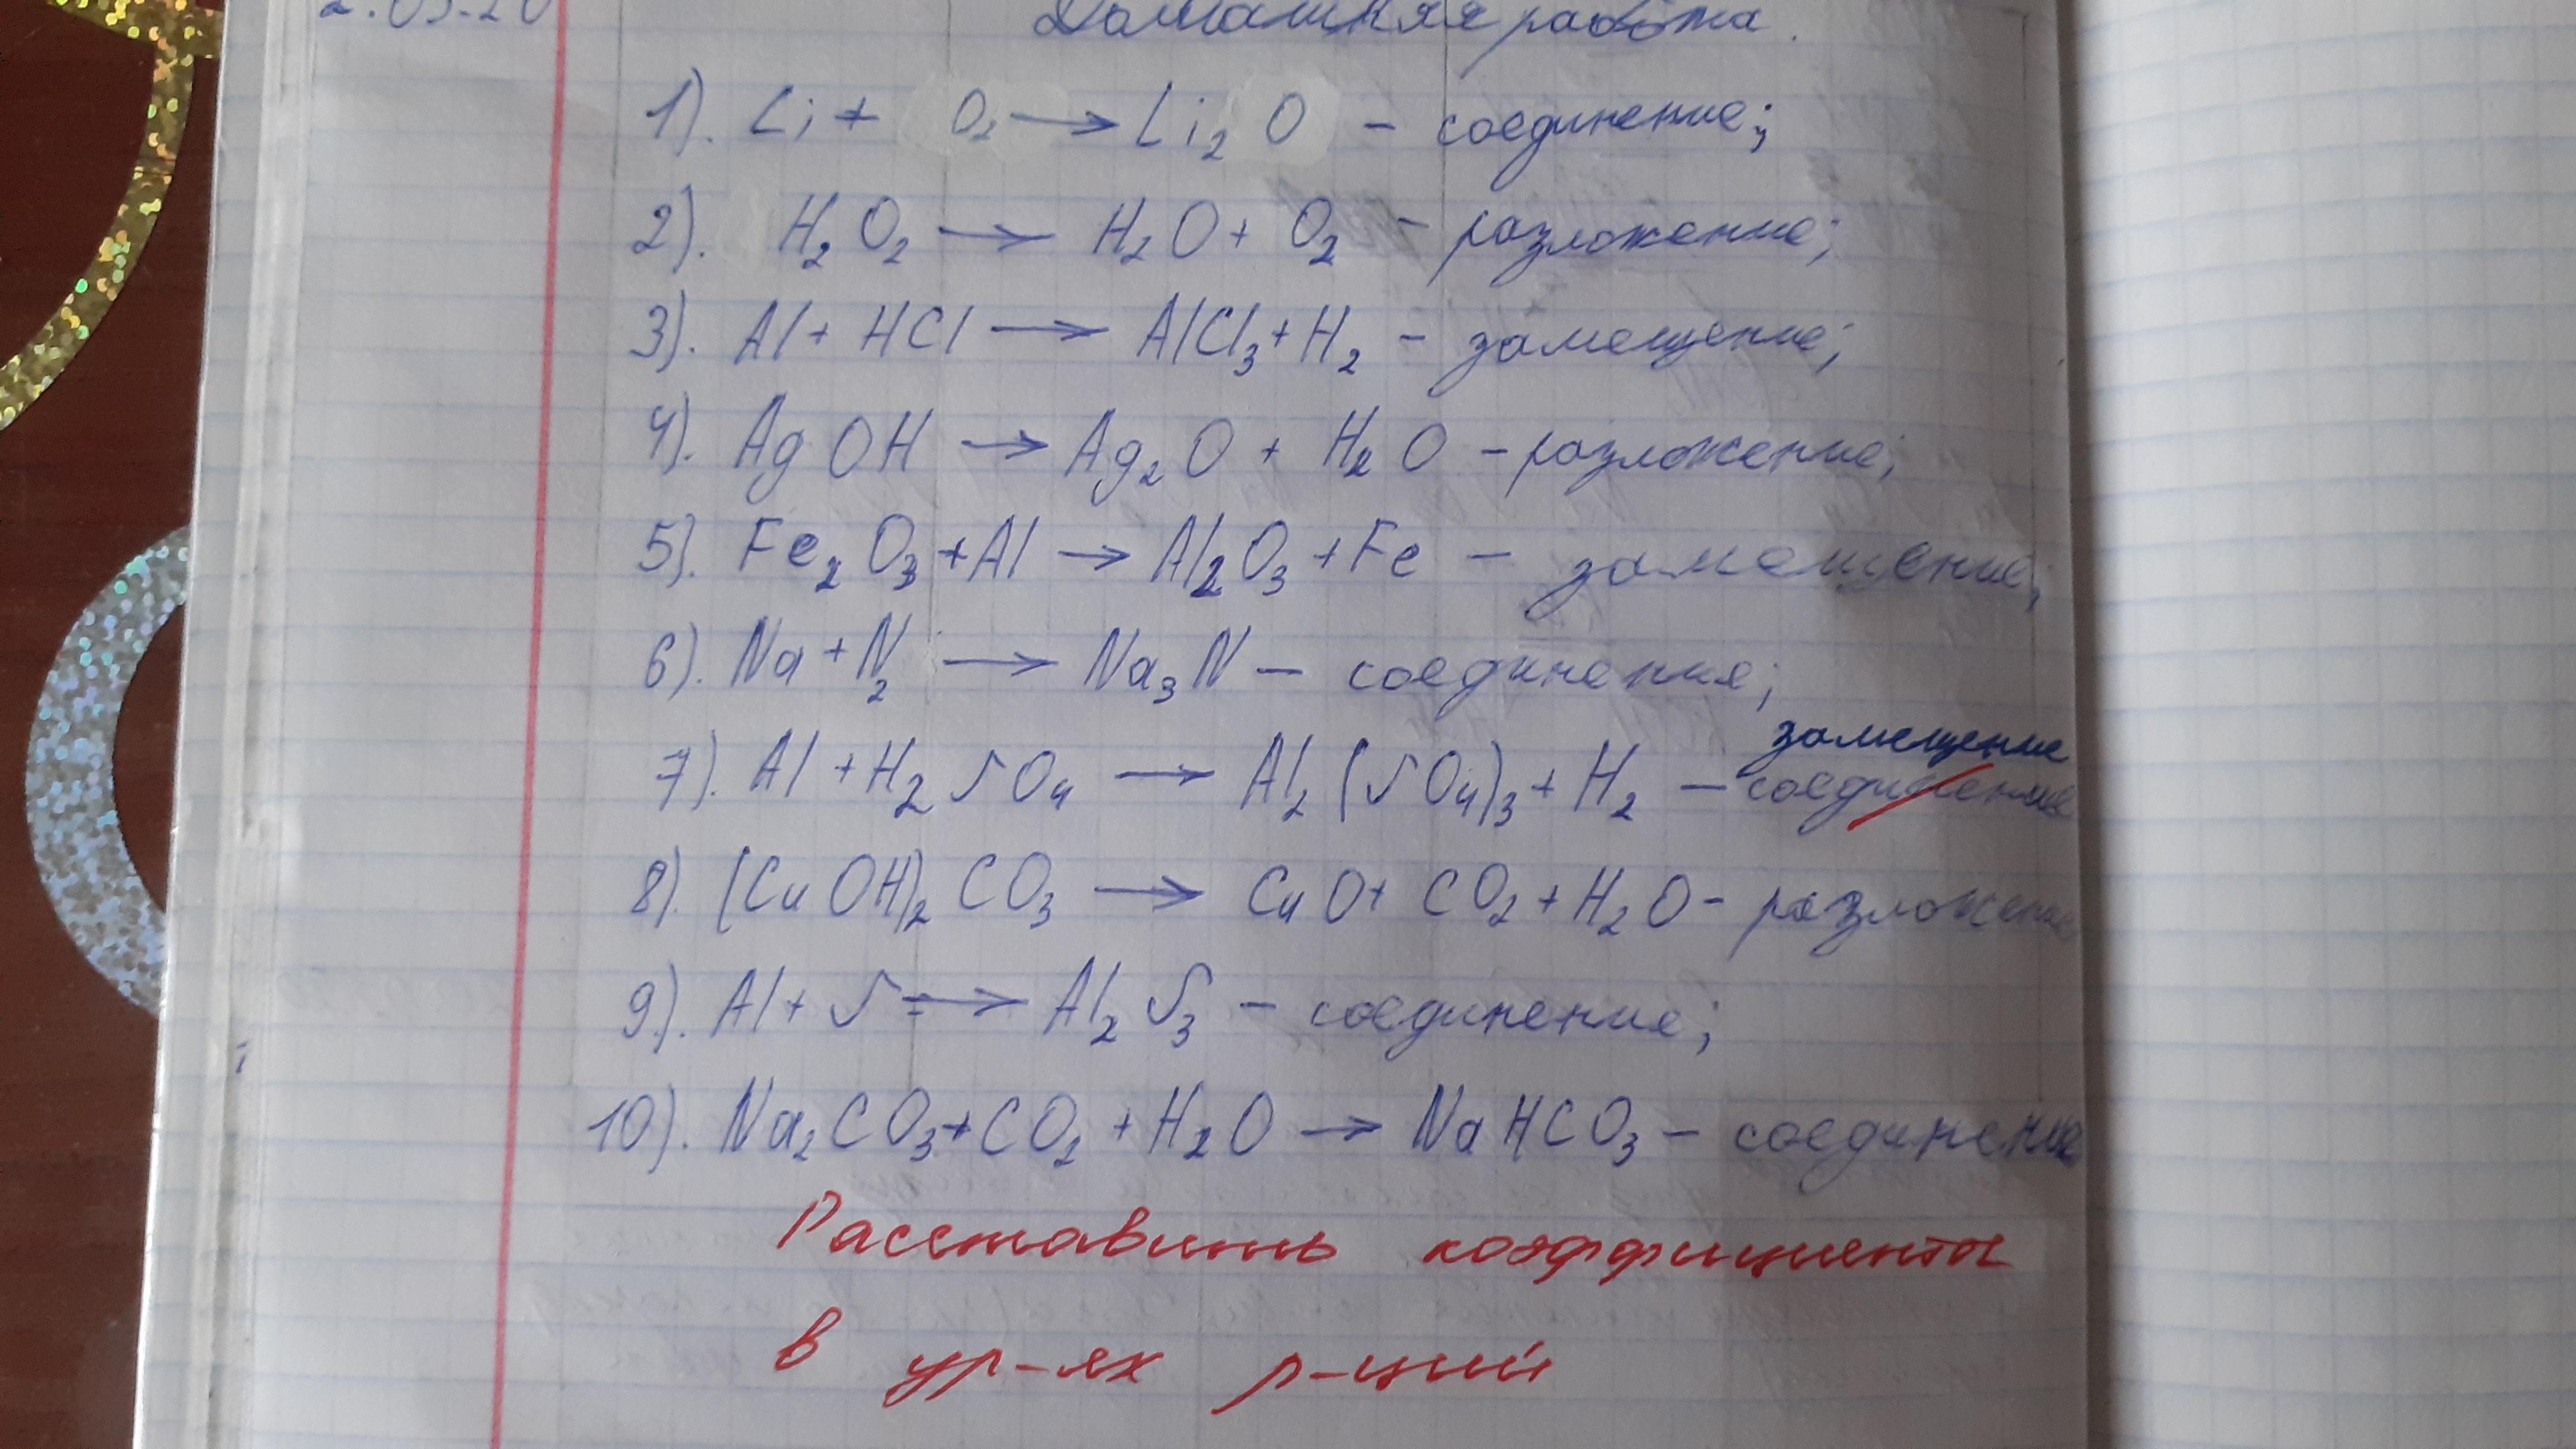 Домашняя работа.
1). Li + O₂ → Li₂O – соединение;
2). H₂O₂ → H₂O + O₂ – разложение;
3). Al + HCl → AlCl₃ + H₂ – замещение;
4). AgOH → Ag₂O + H₂O – разложение;
5). Fe₂O₃ + Al → Al₂O₃ + Fe – замещение;
6). Na + N₂ → Na₃N – соединения;
замещение
7). Al + H₂SO₄ → Al₂(SO₄)₃ + H₂ – соединение
8). (CuOH)₂CO₃ → CuO + CO₂ + H₂O – разложение
9). Al + S → Al₂S₃ – соединение;
10). Na₂CO₃ + CO₂ + H₂O → NaHCO₃ – соединение
Расставить коэффициенты
в ур-ях р-ций